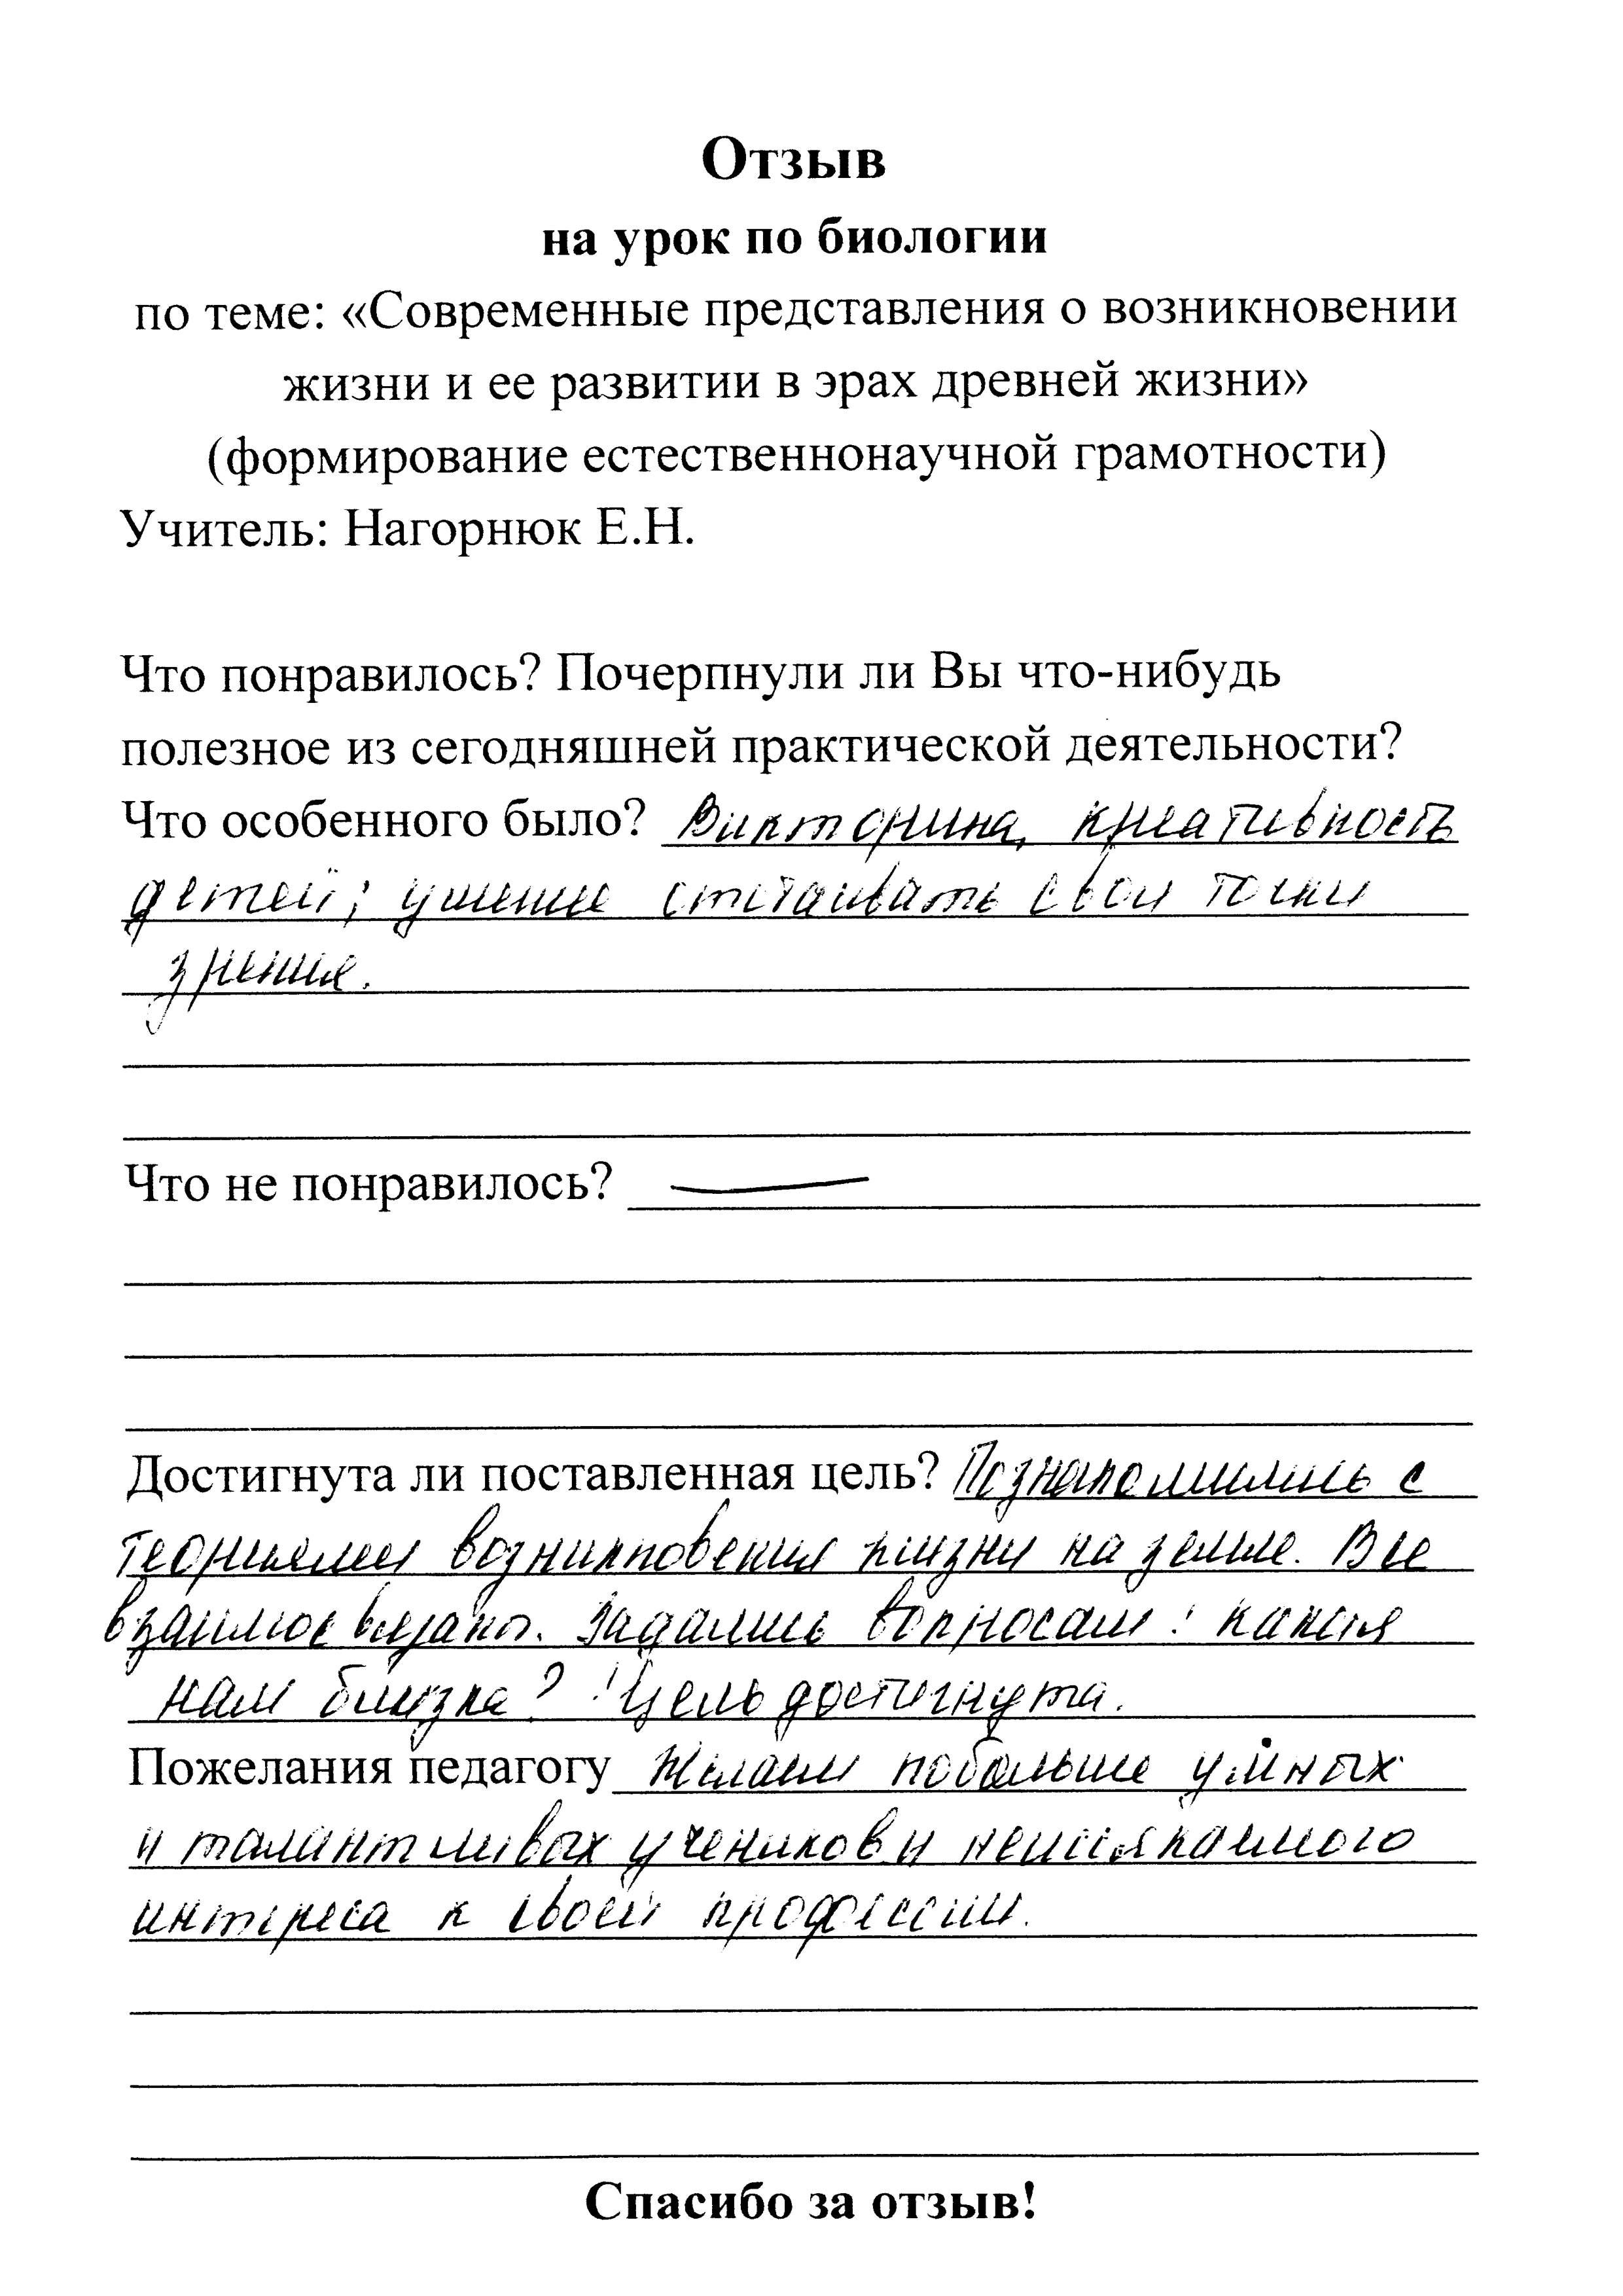 Отзыв
на урок по биологии
по теме: «Современные представления о возникновении
жизни и ее развитии в эрах древней жизни»
(формирование естественнонаучной грамотности)
Учитель: Нагорнюк Е.Н.
Что понравилось? Почерпнули ли Вы что-нибудь
полезное из сегодняшней практической деятельности?
Что особенного было? Викторина, креативность
детей; умение отстаивать свои точки
зрения.
Что не понравилось? —
Достигнута ли поставленная цель? Познакомились с
теориями возникновения жизни на земле. Все
взаимосвязано. Задались вопросам: какая
нам близка? Цель достигнута.
Пожелания педагогу Желаем побольше умных
и талантливых учеников и неиссякаемого
интереса к своей профессии.
Спасибо за отзыв!